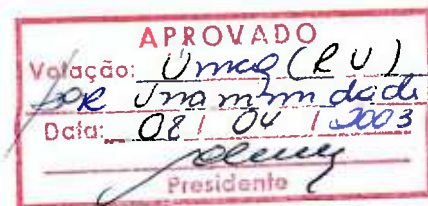 APROVADO
Votação: Única (R U)
por Unanimidade
Data: 08 / 04 / 2003
Presidente